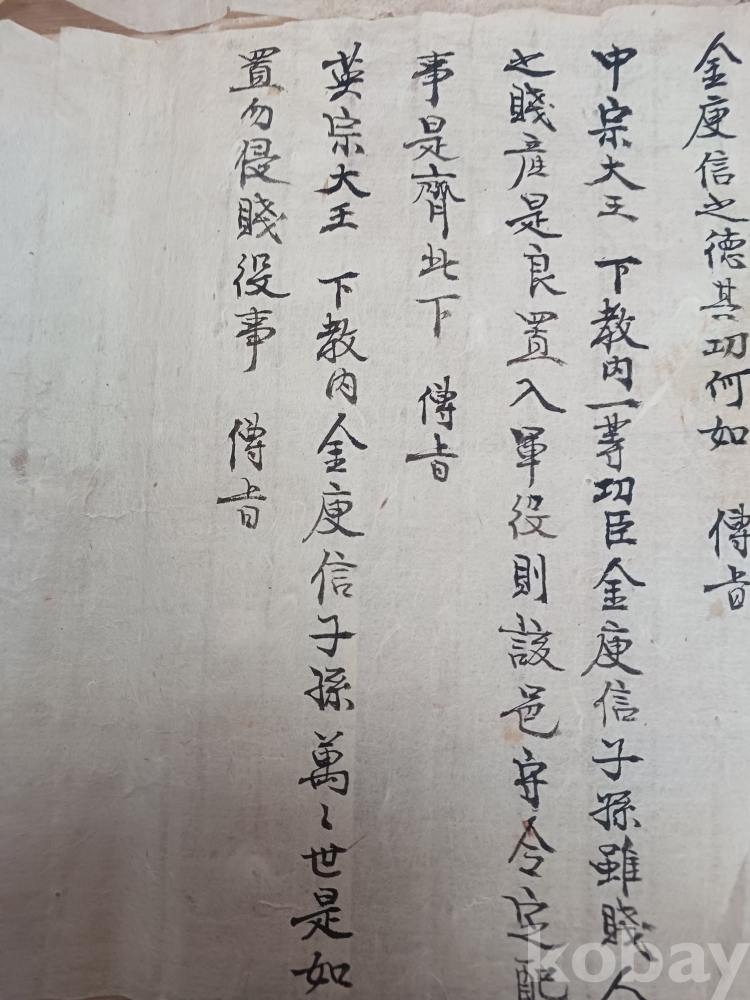 金庾信之德其功何如 傳旨
中宗大王 下教內一等功臣金庾信子孫雖賤人
之賤産是良置入軍役則該邑守令定配
事是齊此下 傳旨
英宗大王 下教內金庾信子孫萬〻世是如
置勿侵賤役事 傳旨
kobay